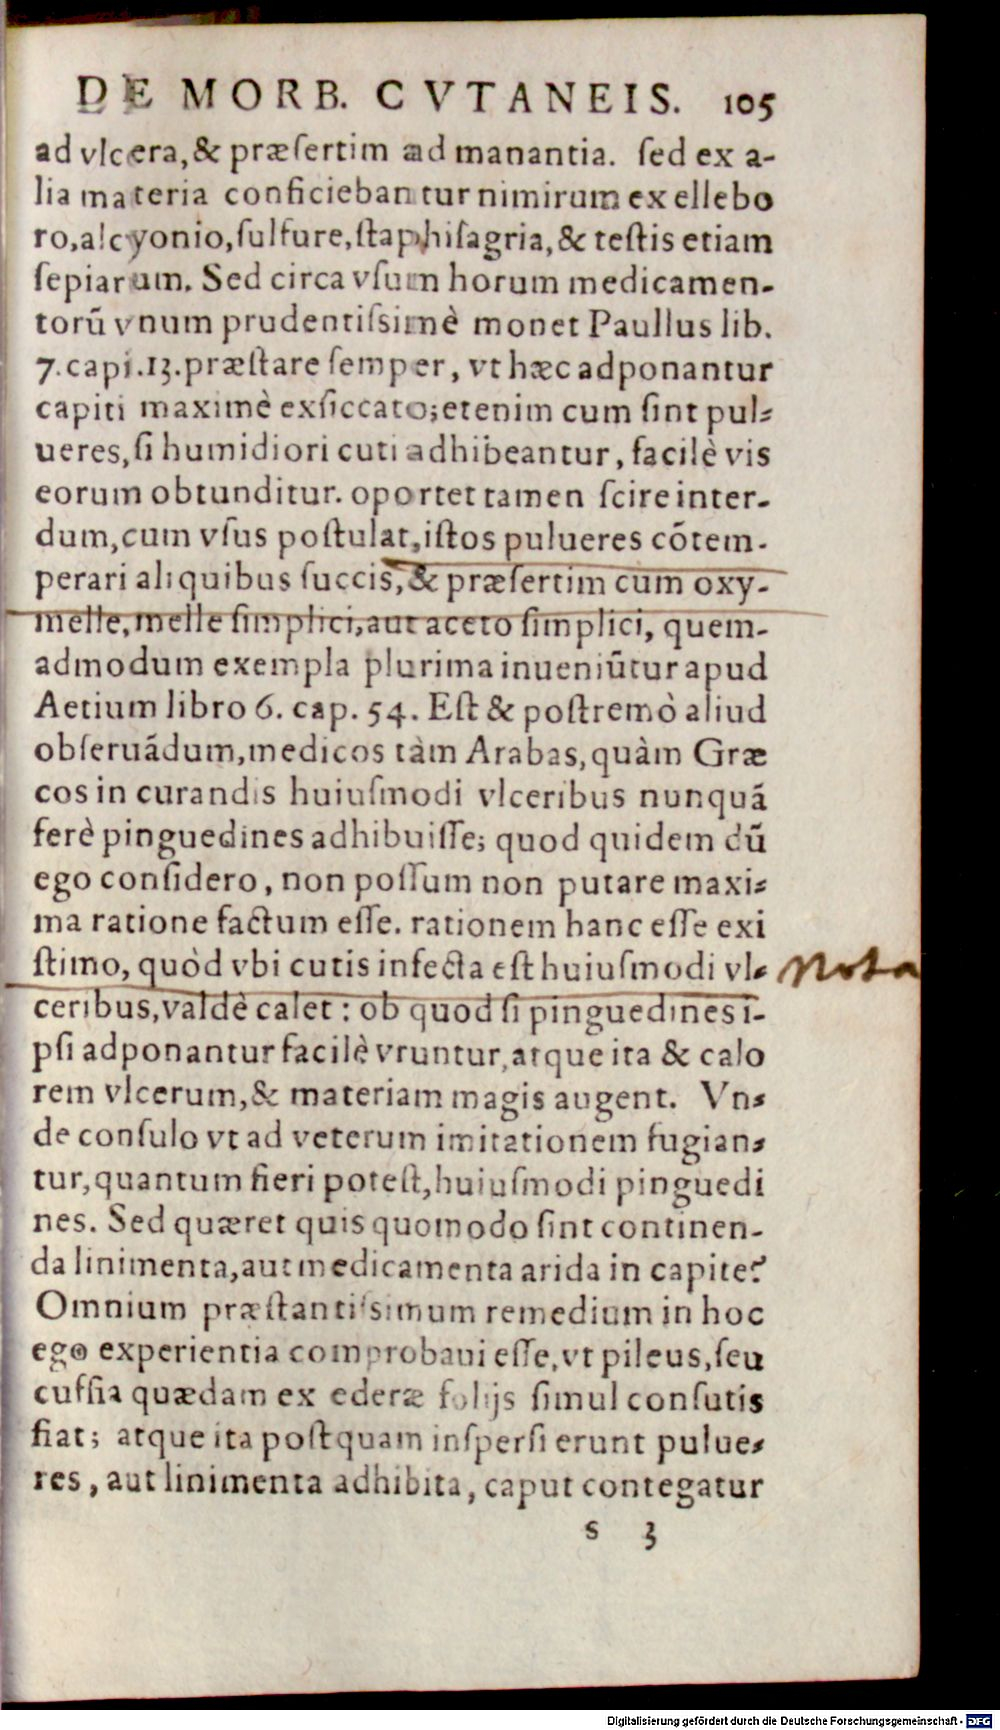 DE MORB. CVTANEIS. 105
ad vlcera,& præſertim ad manantia. ſed ex a-
lia materia conficiebantur nimirum ex ellebo
ro,alcyonio,ſulfure,ſtaphiſagria,& teſtis etiam
ſepiarum. Sed circa vſum horum medicamen-
torū vnum prudentiſsimè monet Paullus lib.
7.capi.13.præſtare ſemper, vt hæc adponantur
capiti maximè exſiccato;etenim cum ſint pul-
ueres,ſi humidiori cuti adhibeantur, facilè vis
eorum obtunditur. oportet tamen ſcire inter-
dum,cum vſus poſtulat,iſtos pulueres cōtem-
perari aliquibus ſuccis,& præſertim cum oxy-
melle,melle ſimplici,aut aceto ſimplici, quem-
admodum exempla plurima inueniūtur apud
Aetium libro 6. cap. 54. Eſt & poſtremò aliud
obſeruādum,medicos tàm Arabas,quàm Græ
cos in curandis huiuſmodi vlceribus nunquā
ferè pinguedines adhibuiſſe; quod quidem dū
ego conſidero, non poſſum non putare maxi-
ma ratione factum eſſe. rationem hanc eſſe exi
ſtimo, quòd vbi cutis infecta eſt huiuſmodi vl- Nota
ceribus,valdè calet : ob quod ſi pinguedines i-
pſi adponantur facilè vruntur,atque ita & calo
rem vlcerum,& materiam magis augent. Vn-
de conſulo vt ad veterum imitationem fugian-
tur,quantum fieri poteſt,huiuſmodi pinguedi
nes. Sed quæret quis quomodo ſint continen-
da linimenta,aut medicamenta arida in capite?
Omnium præſtantiſsimum remedium in hoc
ego experientia comprobaui eſſe,vt pileus,ſeu
cuffia quædam ex ederæ folijs ſimul conſutis
fiat; atque ita poſtquam inſperſi erunt pulue-
res, aut linimenta adhibita, caput contegatur
s 3
Digitalisierung gefördert durch die Deutsche Forschungsgemeinschaft - DFG